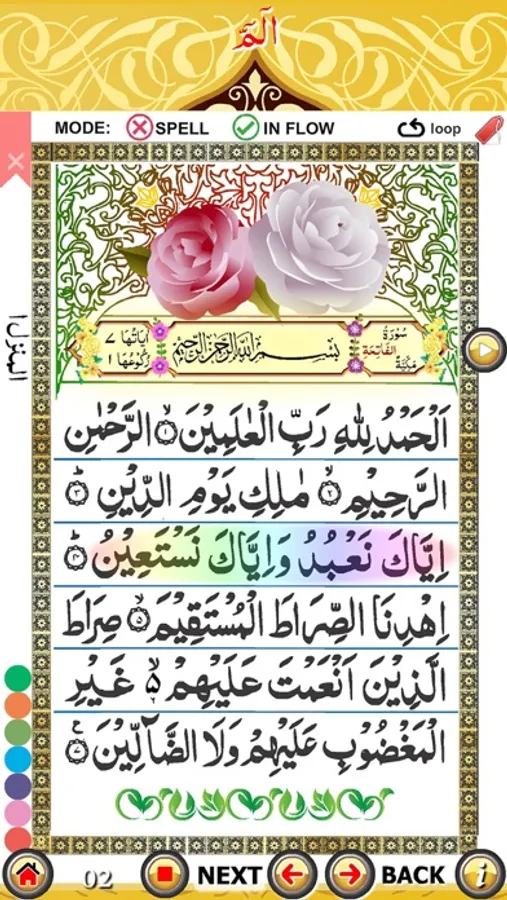 الٓمّٓ
MODE: SPELL IN FLOW loop
سُوْرَةُ الْفَاتِحَةِ مَكِّيَّةٌ
بِسْمِ اللهِ الرَّحْمٰنِ الرَّحِيْمِ
اٰيَاتُهَا ٧
رُكُوْعُهَا ١
المنزل ١
اَلْحَمْدُ لِلّٰهِ رَبِّ الْعٰلَمِيْنَ ۙ﴿١﴾ الرَّحْمٰنِ
الرَّحِيْمِ ۙ﴿٢﴾ مٰلِكِ يَوْمِ الدِّيْنِ ؕ﴿٣﴾
اِيَّاكَ نَعْبُدُ وَاِيَّاكَ نَسْتَعِيْنُ ؕ﴿٤﴾
اِهْدِنَا الصِّرَاطَ الْمُسْتَقِيْمَ ۙ﴿٥﴾ صِرَاطَ
الَّذِيْنَ اَنْعَمْتَ عَلَيْهِمْ ۙ۵ غَيْرِ
الْمَغْضُوْبِ عَلَيْهِمْ وَلَا الضَّآلِّيْنَ ﴿٧﴾
02 NEXT BACK i